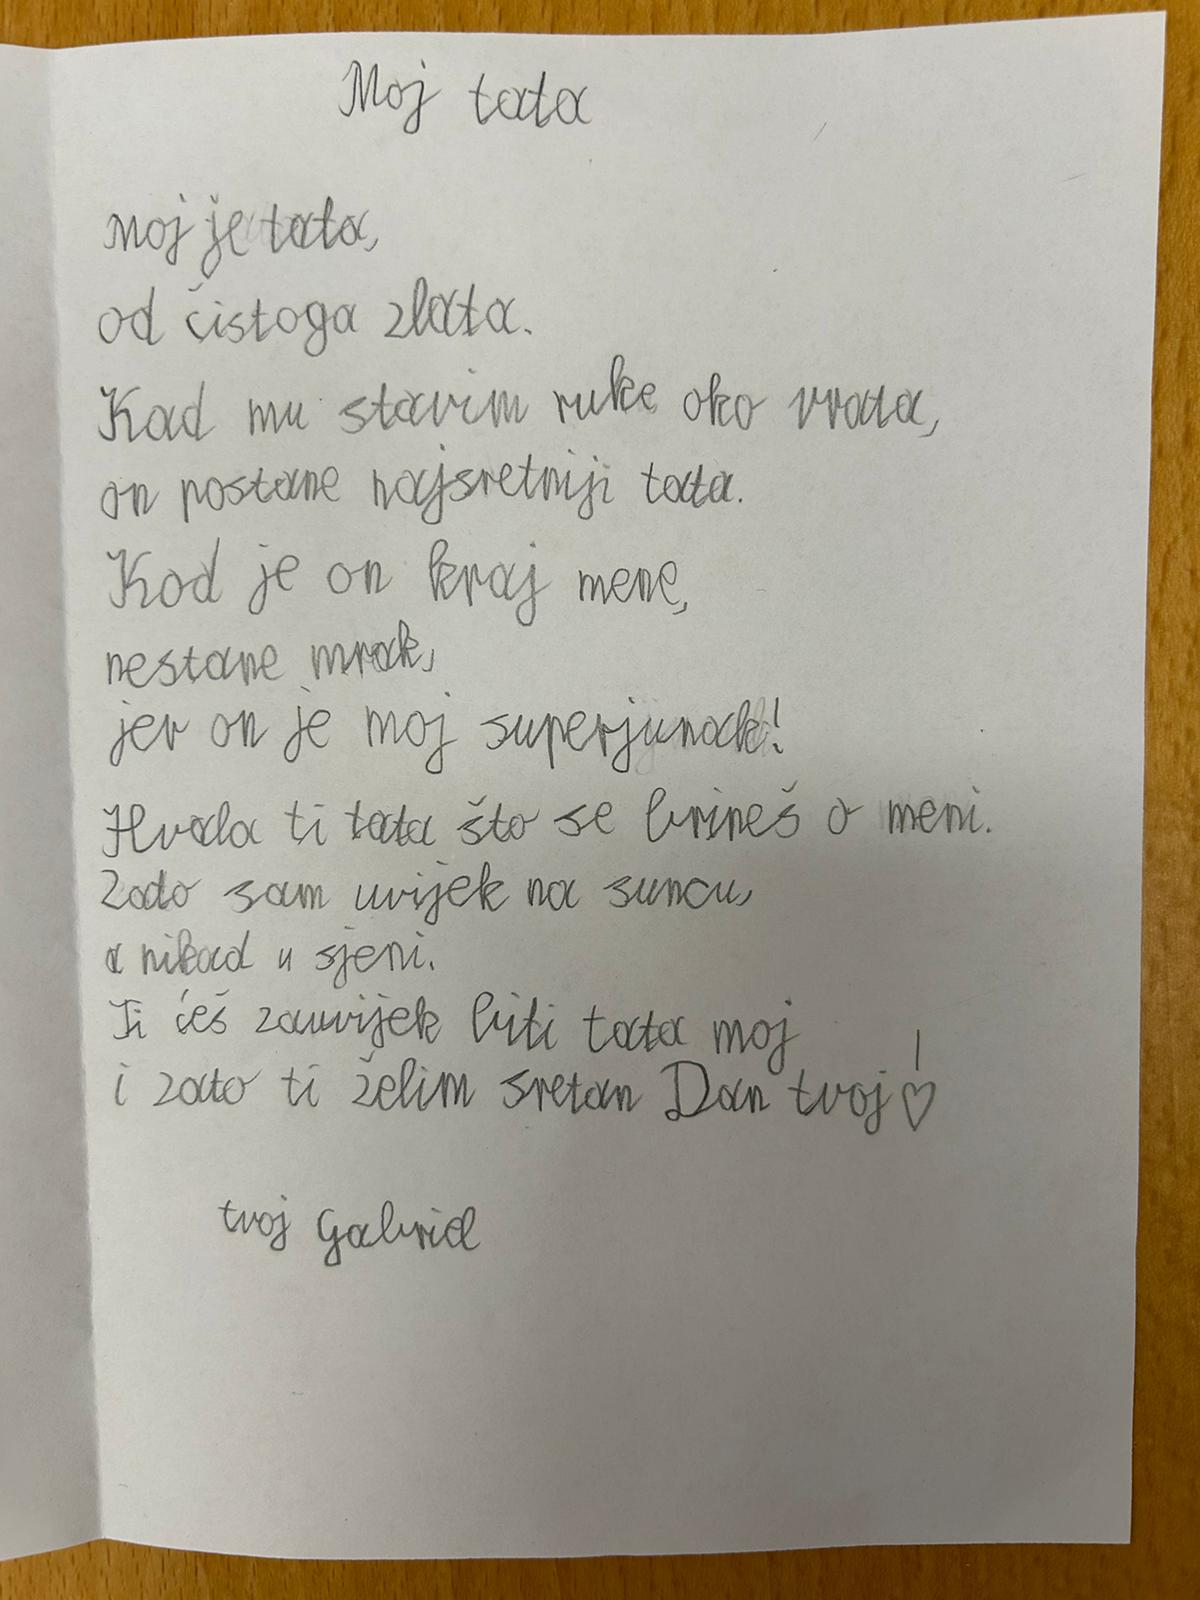 Moj tata
Moj je tata,
od čistoga zlata.
Kad mu stavim ruke oko vrata,
on postane najsretniji tata.
Kad je on kraj mene,
nestane mrak,
jer on je moj superjunak!
Hvala ti tata što se brineš o meni.
Zato sam uvijek na suncu,
a nikad u sjeni.
Ti ćeš zauvijek biti tata moj
i zato ti želim sretan Dan tvoj!♡
tvoj Gabriel